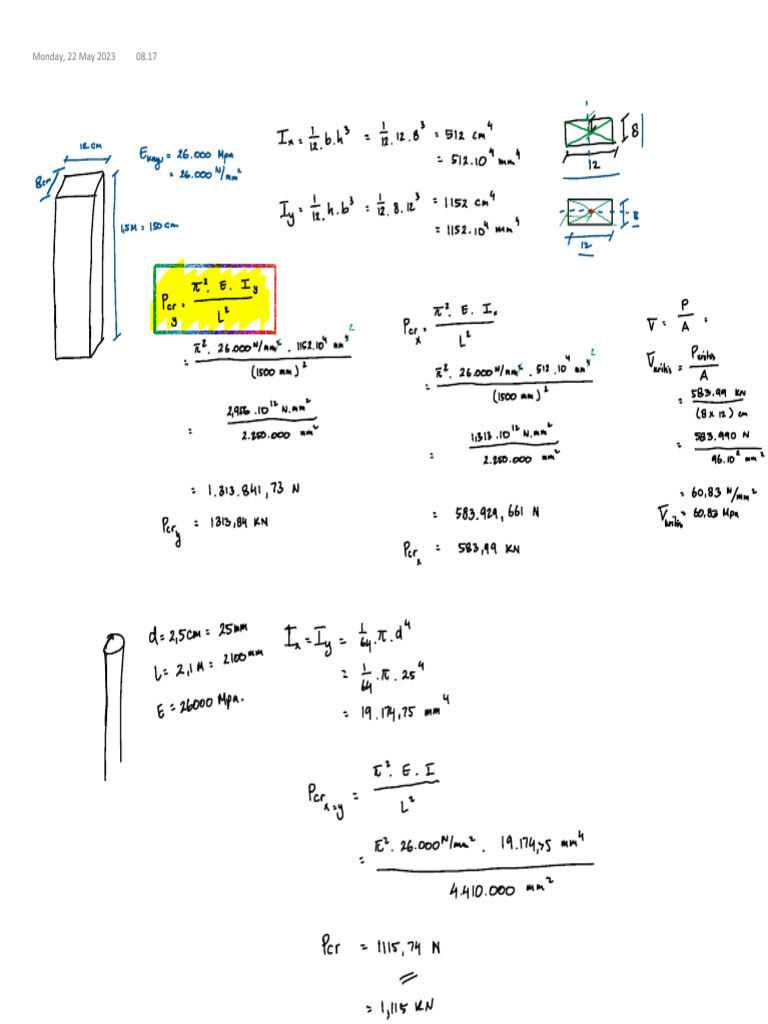 Monday, 22 May 2023 08.17
12 cm
8cm
1,5M = 150 cm
E kayu = 26.000 Mpa
= 26.000 N/mm²
Iₓ = 1/12 . b.h³ = 1/12 . 12.8³ = 512 cm⁴
= 512.10⁴ mm⁴
8
12
I_y = 1/12 . h.b³ = 1/12 . 8.12³ = 1152 cm⁴
= 1152.10⁴ mm⁴
8
12
Pcr y = π². E. I y / L²
= π². 26.000 N/mm² . 1152.10⁴ mm⁴ ² / (1500 mm)²
= 2,956 .10¹² N.mm² / 2.250.000 mm²
= 1.313.841,73 N
Pcr y = 1313,84 KN
Pcr x = π². E. Iₓ / L²
= π². 26.000 N/mm² . 512 .10⁴ mm⁴ ² / (1500 mm)²
= 1,313 .10¹² N.mm² / 2.250.000 mm²
= 583.929, 661 N
Pcr x = 583,99 KN
σ = P / A =
σ kritis = P kritis / A
= 583,99 KN / (8 x 12) cm
= 583.990 N / 96.10² mm²
= 60,83 N/mm²
σ kritis = 60,83 Mpa
d = 2,5cm = 25mm
L = 2,1 M = 2100 mm
E = 26000 Mpa.
Iₓ = I_y = 1/64 . π. d⁴
= 1/64 . π. 25⁴
= 19.174,75 mm⁴
Pcr x=y = π². E. I / L²
= π². 26.000 N/mm² . 19.174,75 mm⁴ / 4.410.000 mm²
Pcr = 1115,74 N
= 1,115 KN